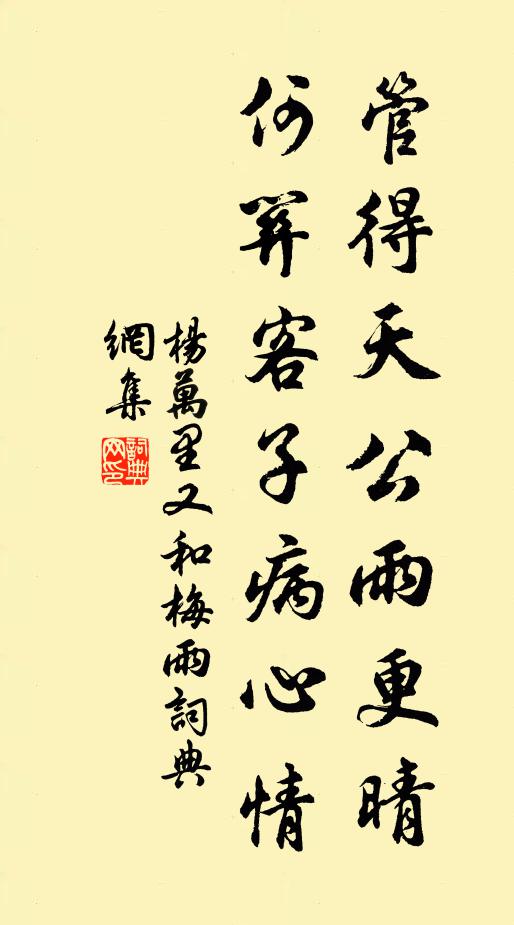 管得天公雨更晴
何關客子病心情
楊萬里又和梅雨詞典
網集
詞典
网印